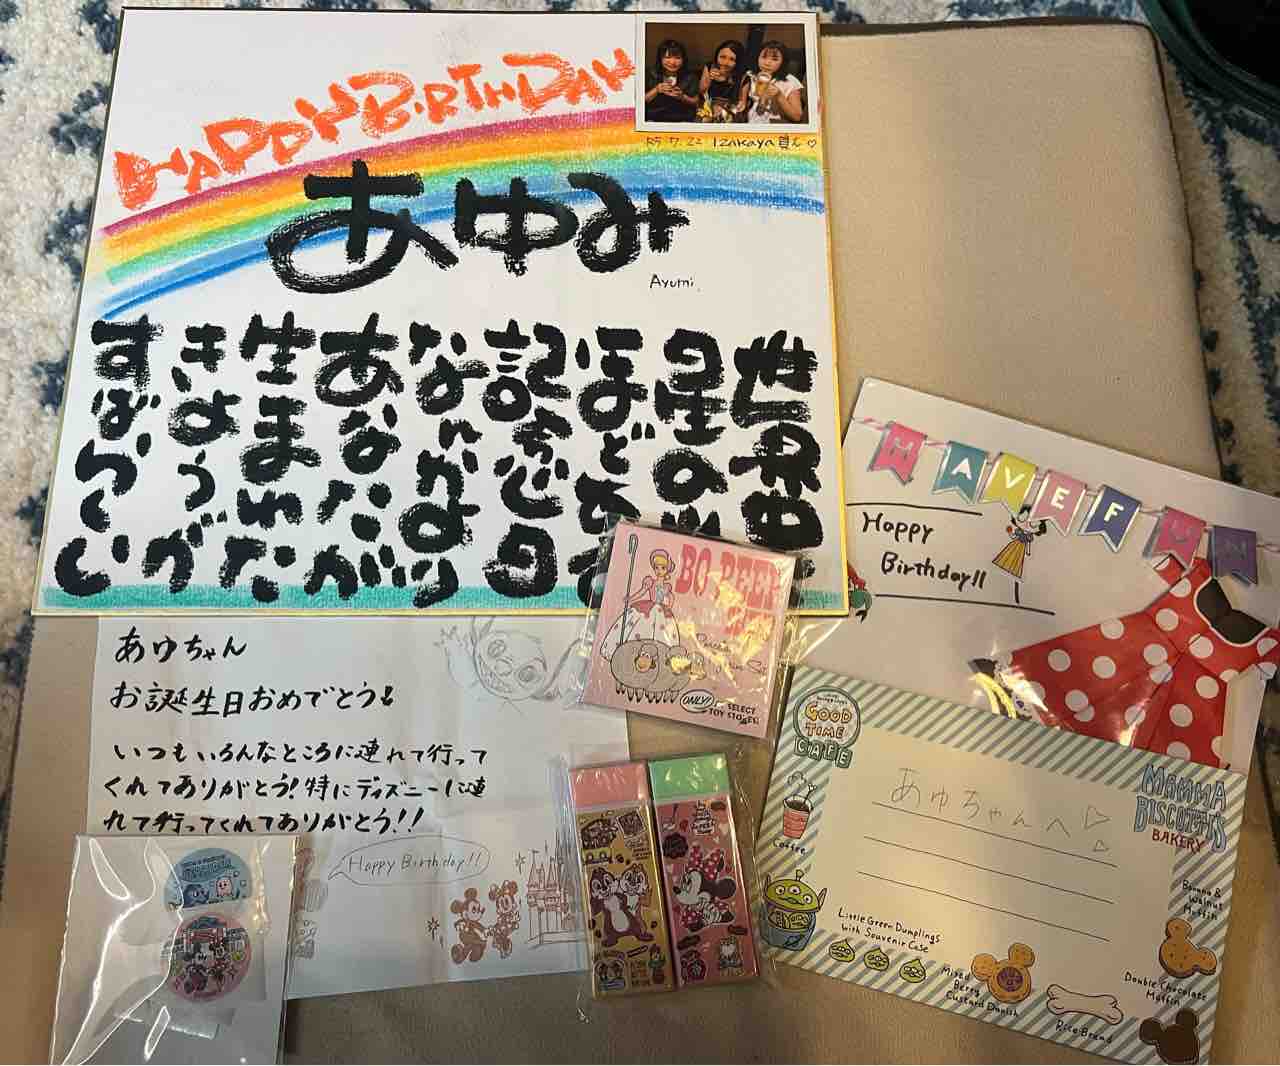 HAPPY BIRTHDAY
R5.7.22 Izakaya 真え♡
あゆみ
Ayumi.
世界中
星の
ほどある
記念日
なにより
あなたが
生まれた
きょうが
すばらしい
あゆちゃん
お誕生日おめでとう!
いつもいろんなところに連れて行って
くれてありがとう!特にディズニーに連
れて行ってくれてありがとう!!
Happy Birthday!!
BO PEEP
ONLY!
SELECT
TOY STORES
HAVE FUN
Happy
Birthday!!
GOOD
TIME
CAFE
あゆちゃんへ♡
MAMMA
BISCOTTI'S
BAKERY
Coffee
Little Green Dumplings
with Souvenir Case
Mixed
Berry
Custard Danish
Rice Bread
Banana &
Walnut
Muffin
Double Chocolate
Muffin